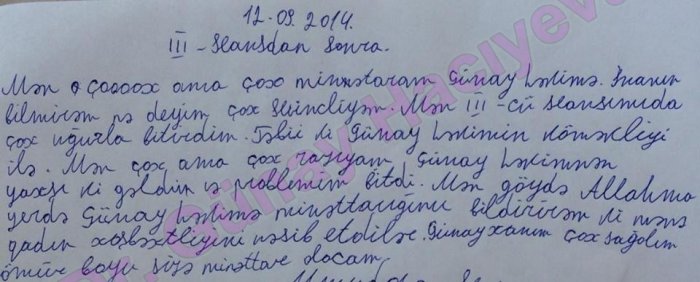 12.09.2014.
III - seansdan sonra.
Mən çooooox ama çox minnətaram Günay həkimə. İnanın
bilmirəm nə deyim çox sevincliyəm. Mən III-cü seansımıda
çox uğurla bitirdim. Təbii ki Günay həkimin köməkliyi
ilə. Mən çox ama çox razıyam, Günay həkimnən
yaxşı ki gəldim və problemim bitdi. Mən göydə Allahıma
yerdə Günay həkimə minəttarığımı bildirirəm ki mənə
qadın xoşbəxtliyini nəsib etdilər. Günay xanım çox sağolun
ömür boyu sizə minəttar olacam.
Dr. Günay Hacıyeva